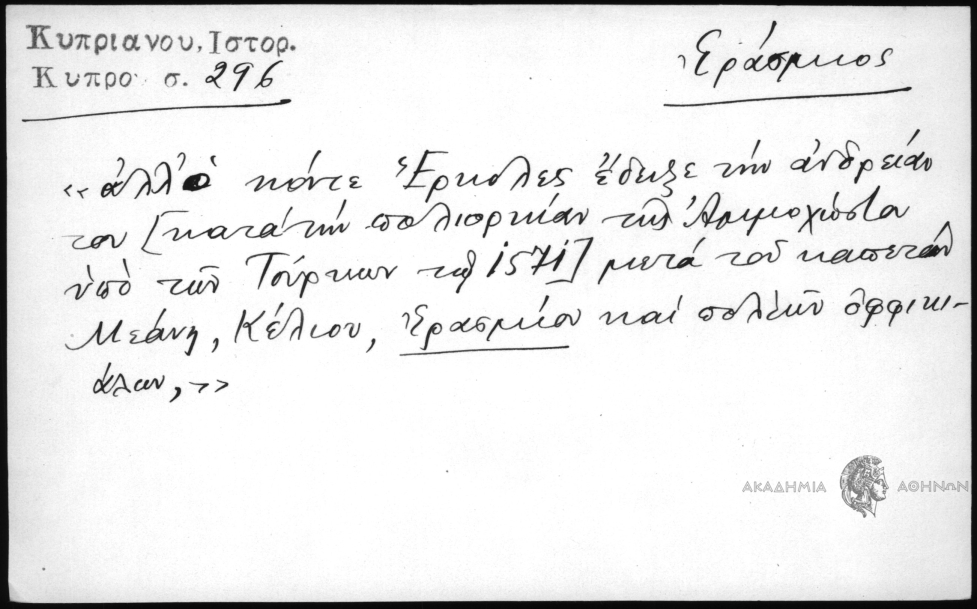 Κυπριανου, Ιστορ.
Κυπρο σ. 296
Ἐράσμιος
«ἀλλ' ὁ κόντε Ἔρκολες ἔδειξε τὴν ἀνδρείαν
του [κατὰ τὴν πολιορκίαν τῆς Ἀμμοχώστου
ὑπὸ τῶν Τούρκων τῷ 1571] μετὰ τοῦ καπετὰν
Μεάνη, Κέλιου, Ἐρασμίου καὶ πολλῶν ὀφφικι-
άλων,»
ΑΚΑΔΗΜΙΑ ΑΘΗΝΩΝ